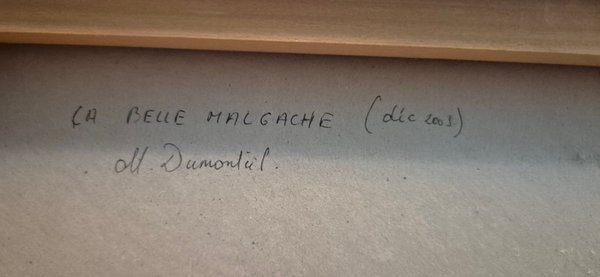 LA BELLE MALGACHE (déc 2003)
M. Dumontiel.